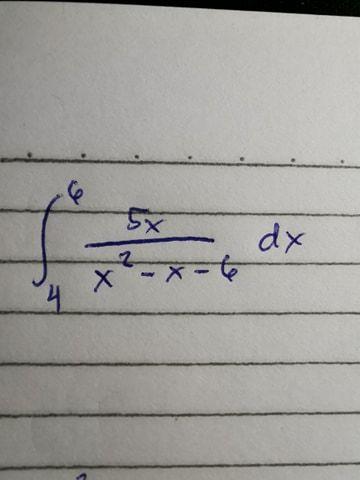 ∫₄⁶ 5x / (x² - x - 6) dx